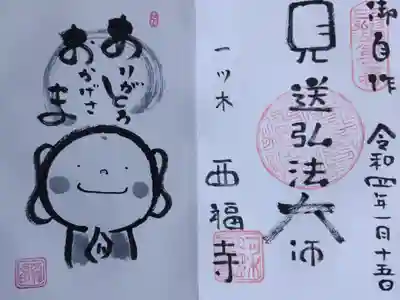 御自作
令和四年一月十五日
見送弘法大師
一ツ木
西福寺
ありがとう
おかげさま